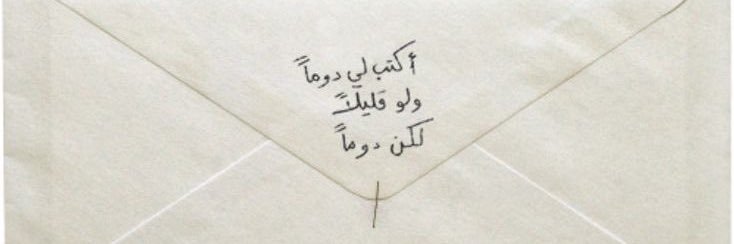 أكتب لي دوماً
ولو قليلاً
لكن دوماً